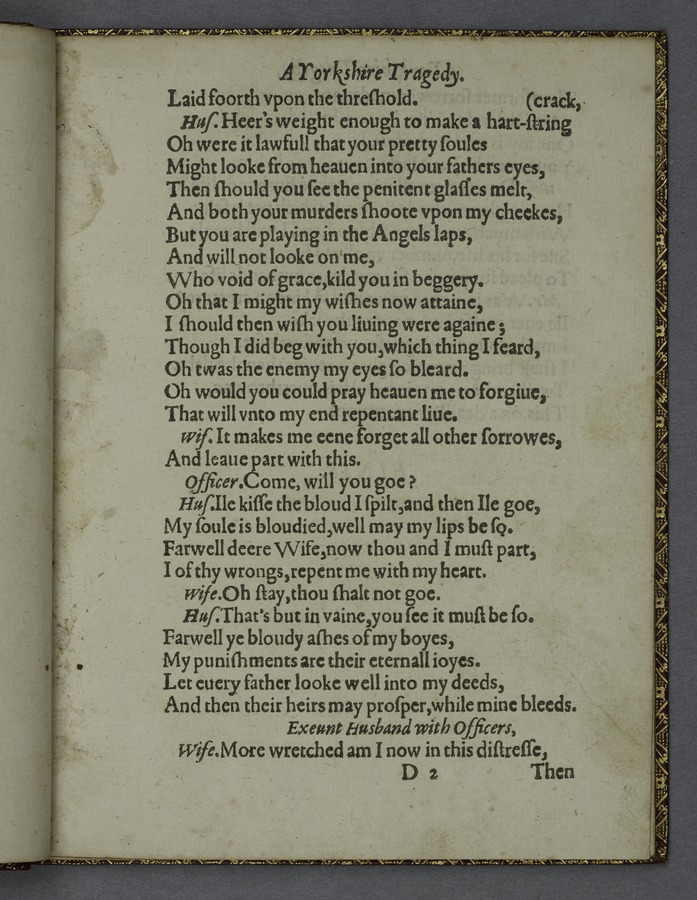 A Yorkshire Tragedy.
Laid foorth vpon the threſhold. (crack,
Huſ. Heer's weight enough to make a hart-ſtring
Oh were it lawfull that your pretty ſoules
Might looke from heauen into your fathers eyes,
Then ſhould you ſee the penitent glaſſes melt,
And both your murders ſhoote vpon my cheekes,
But you are playing in the Angels laps,
And will not looke on me,
Who void of grace,kild you in beggery.
Oh that I might my wiſhes now attaine,
I ſhould then wiſh you liuing were againe;
Though I did beg with you,which thing I feard,
Oh twas the enemy my eyes ſo bleard.
Oh would you could pray heauen me to forgiue,
That will vnto my end repentant liue.
Wif. It makes me eene forget all other ſorrowes,
And leaue part with this.
Officer.Come, will you goe?
Huſ.Ile kiſſe the bloud I ſpilt,and then Ile goe,
My ſoule is bloudied,well may my lips be ſo.
Farwell deere Wife,now thou and I muſt part,
I of thy wrongs,repent me with my heart.
Wife.Oh ſtay,thou ſhalt not goe.
Huſ.That's but in vaine,you ſee it muſt be ſo.
Farwell ye bloudy aſhes of my boyes,
My puniſhments are their eternall ioyes.
Let euery father looke well into my deeds,
And then their heirs may proſper,while mine bleeds.
Exeunt Husband with Officers,
Wife.More wretched am I now in this diſtreſſe,
D 2 Then